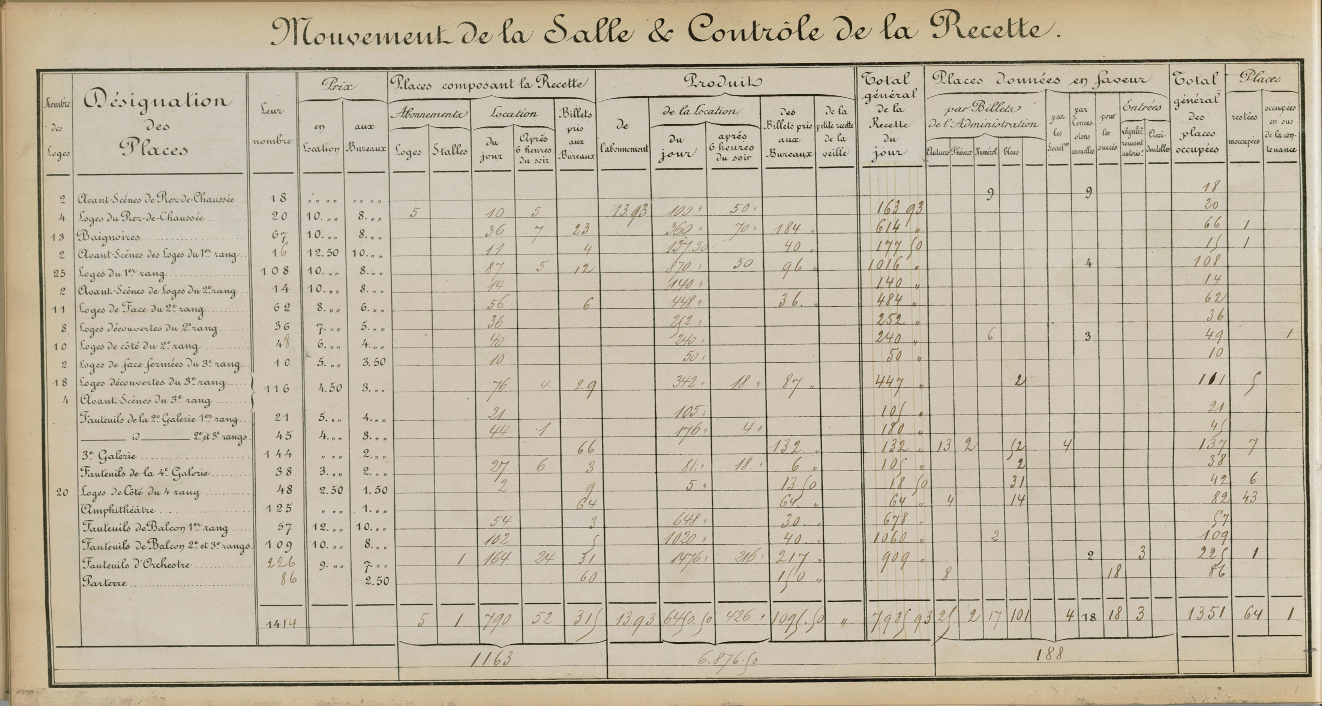 Mouvement de la Salle & Contrôle de la Recette.
Nombre des Loges | Désignation des Places | Leur nombre | Prix | Places composant la Recette | Produit | Total général de la Recette du jour | Places données en faveur | Total général des places occupées | Places
en Location | aux Bureaux | Abonnements | Location | Billets pris aux Bureaux | de l'abonnement | de la Location | des Billets pris aux Bureaux | de la petite recette de la veille | par Billets de l'Administration | par les | par | pour les | Entrées | restées inoccupées | occupées en sus de la contenance
Loges | Stalles | du jour | Après 6 heures du soir | du jour | après 6 heures du soir
2 Avant-Scènes de Rez-de-Chaussée 18 9 9 18
4 Loges du Rez-de-Chaussée 20 10.„ 8.„ 5 10 5 13.93 100 50 163 93 20
13 Baignoires 67 10.„ 8.„ 36 7 23 360 70 184 614 66 1
2 Avant-Scènes des Loges du 1er rang 16 12.50 10.„ 11 4 137 50 40 177 50 15 1
25 Loges du 1er rang 108 10.„ 8.„ 87 5 12 870 50 96 1016 4 108
2 Avant-Scènes de Loges du 2e rang 14 10.„ 8.„ 14 140 140 14
11 Loges de Face du 2e rang 62 8.„ 6.„ 56 6 448 36 484 62
8 Loges découvertes du 2e rang 36 7.„ 5.„ 36 252 252 36
10 Loges de côté du 2e rang 48 6.„ 4.„ 40 240 240 6 3 49 1
2 Loges de face fermées du 3e rang 10 5.„ 3.50 10 50 50 10
18 Loges découvertes du 3e rang 116 4.50 3.„ 76 4 29 342 18 87 447 2 111 5
4 Avant-Scènes du 3e rang
Fauteuils de la 2e Galerie 1er rang 21 5.„ 4.„ 21 105 105 21
id 2e et 3e rangs 45 4.„ 3.„ 44 1 176 4 180 45
3e Galerie 144 „ 2.„ 66 132 132 13 2 52 4 137 7
Fauteuils de la 4e Galerie 38 3.„ 2.„ 27 6 3 81 18 6 105 2 38
20 Loges de Côté du 4 rang 48 2.50 1.50 2 9 5 13 50 18 50 31 42 6
Amphithéâtre 125 „ 1.„ 64 64 64 4 14 82 43
Fauteuils de Balcon 1er rang 57 12.„ 10.„ 54 3 648 30 678 57
Fauteuils de Balcon 2e et 3e rangs 109 10.„ 8.„ 102 5 1020 40 1060 2 109
Fauteuils d'Orchestre 226 9.„ 7.„ 1 164 24 31 1476 216 217 909 2 3 225 1
Parterre 86 2.50 60 150 8 18 86
1414 5 1 790 52 315 13.93 6450.50 426 1095.50 „ 7985 93 25 2 17 101 4 18 18 3 1351 64 1
1163 6.876.50 188